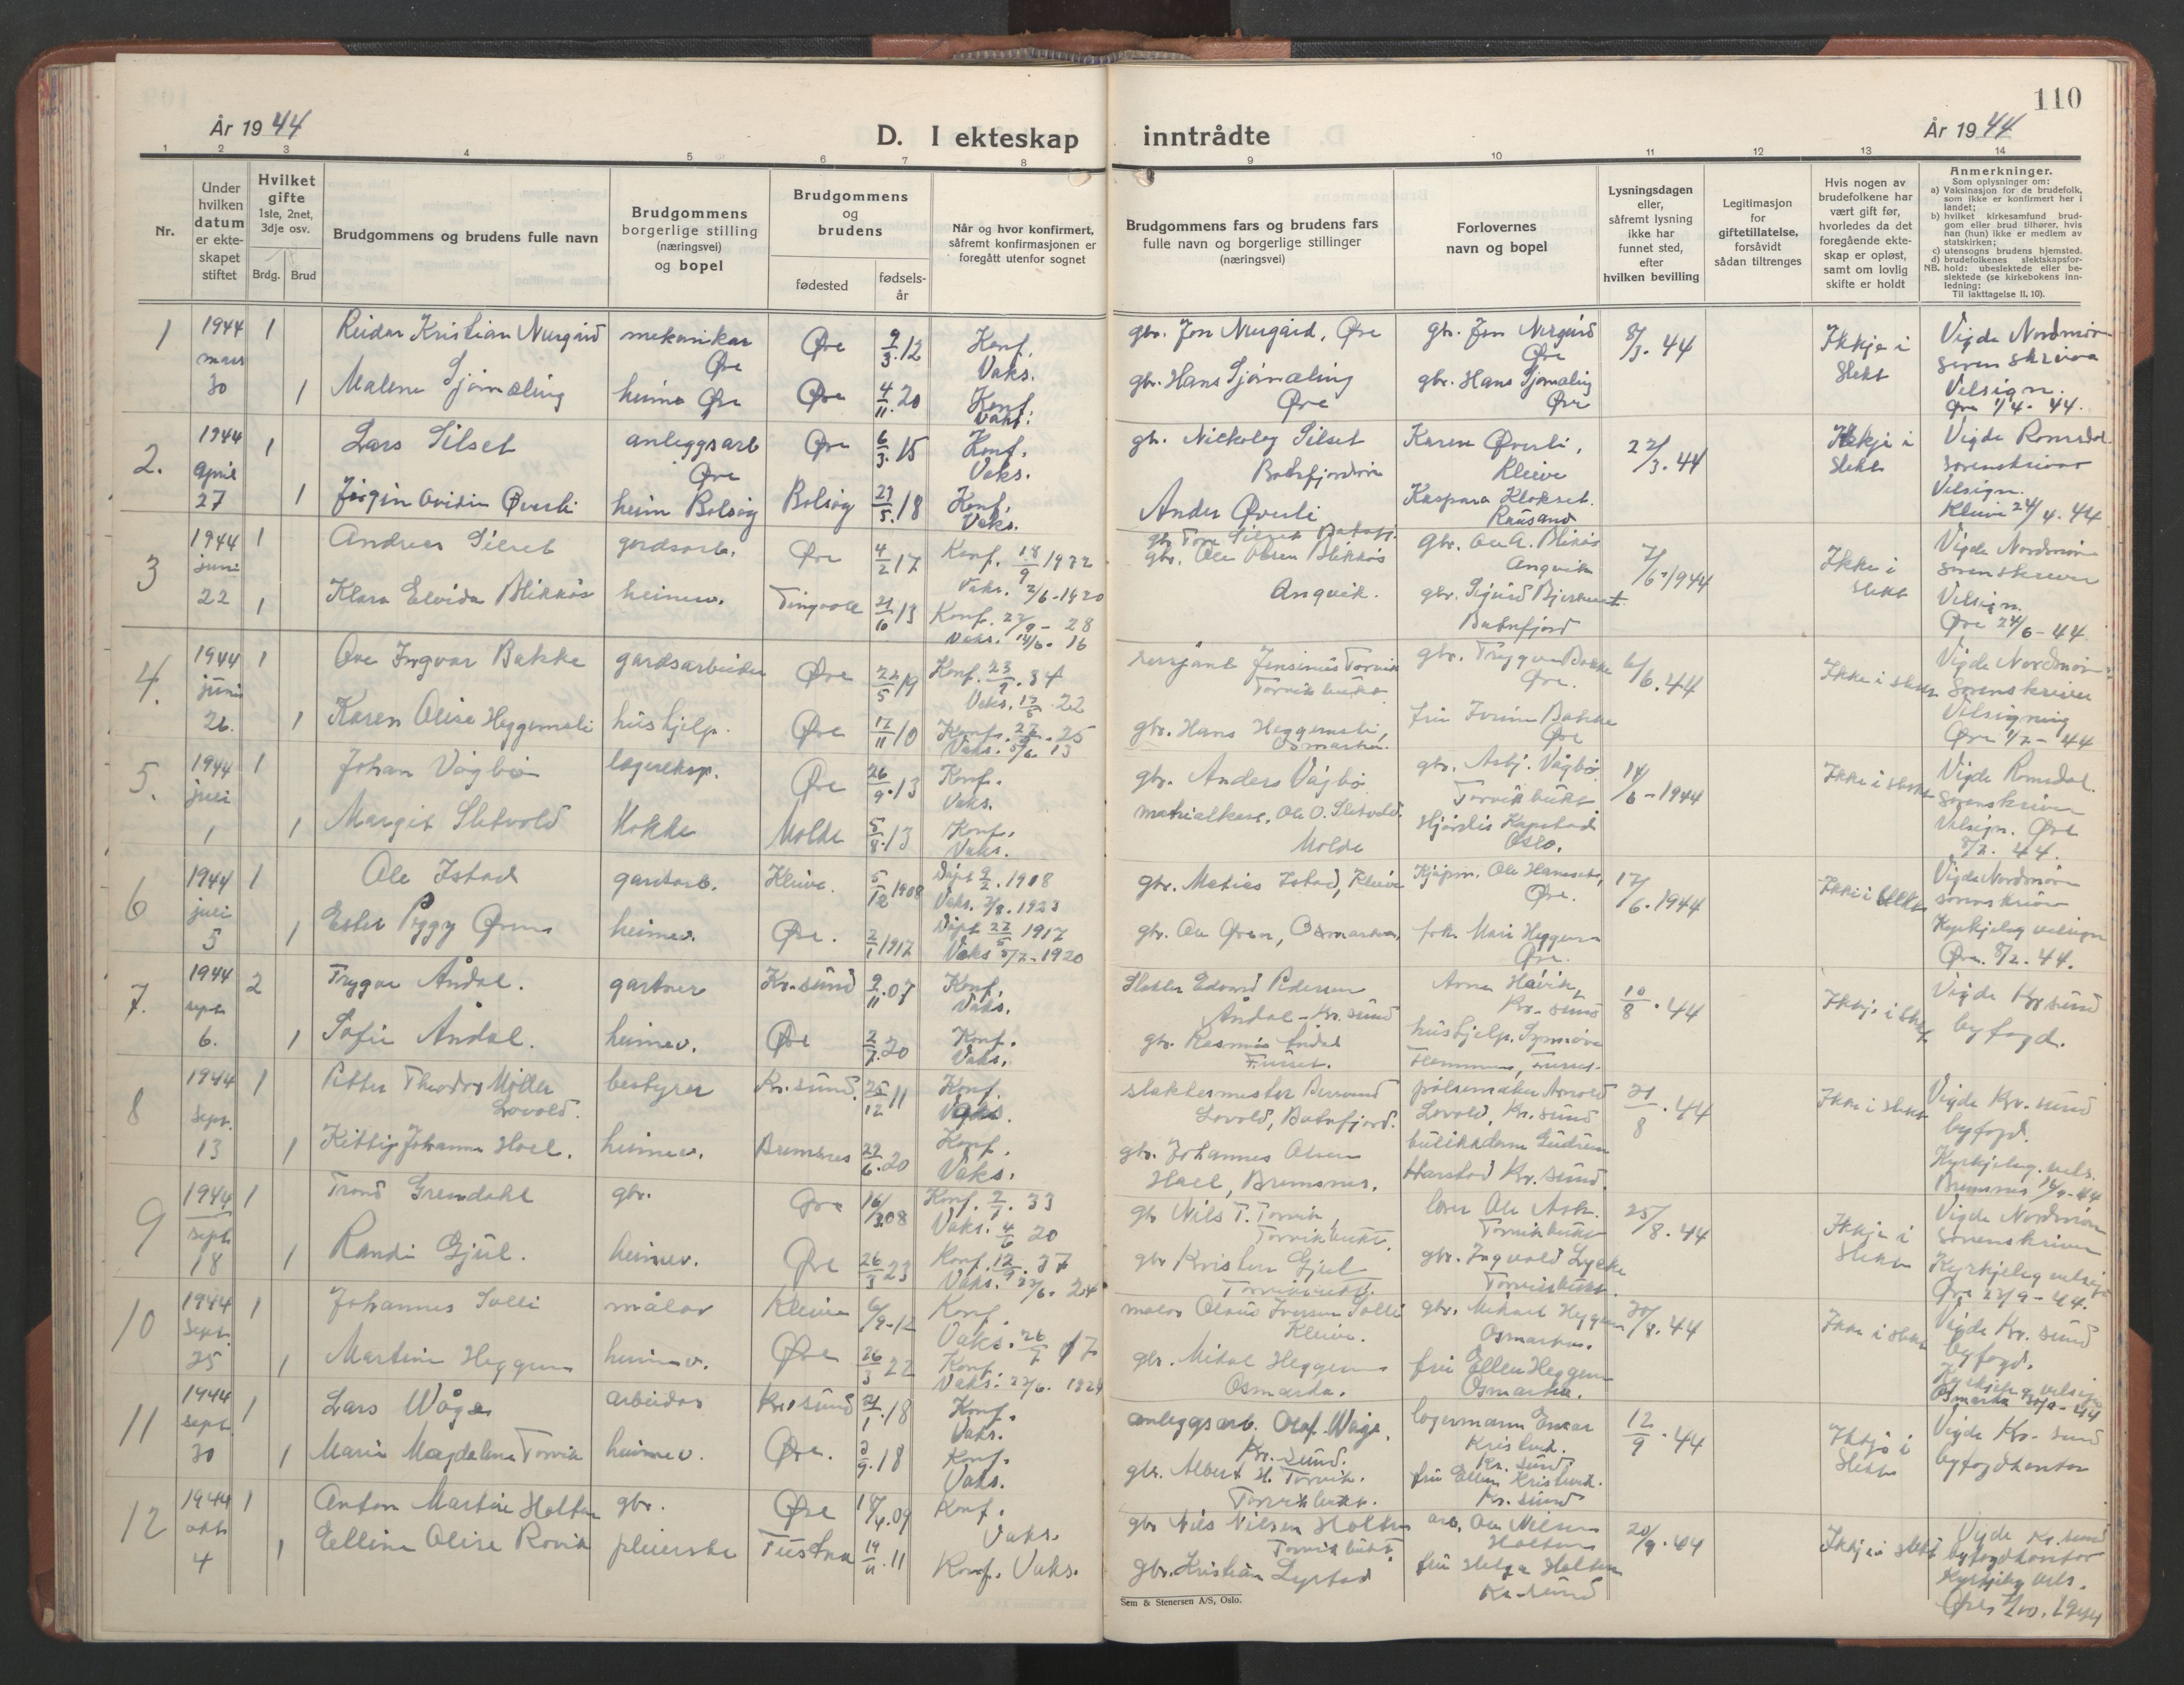 110
År 1944
D. I ekteskap inntrådte
År 1944
1 2 3 4 5 6 7 8 9 10 11 12 13 14
Nr.
Under hvilken datum er ekteskapet stiftet
Hvilket gifte 1ste, 2net, 3dje osv.
Brdg. Brud
Brudgommens og brudens fulle navn
Brudgommens borgerlige stilling (næringsvei) og bopel
Brudgommens og brudens
fødested
fødsels-år
Når og hvor konfirmert, såfremt konfirmasjonen er foregått utenfor sognet
Brudgommens fars og brudens fars fulle navn og borgerlige stillinger (næringsvei)
Forlovernes navn og bopel
Lysningsdagen eller, såfremt lysning ikke har funnet sted, efter hvilken bevilling
Legitimasjon for giftetillatelse, forsåvidt sådan tiltrenges
Hvis nogen av brudefolkene har vært gift før, hvorledes da det foregående ekteskap er opløst, samt om lovlig skifte er holdt
Anmerkninger.
Som oplysninger om:
a) Vaksinasjon for de brudefolk, som ikke er konfirmert her i landet;
b) hvilket kirkesamfund brudgom eller brud tilhører, hvis han (hun) ikke er medlem av statskirken;
c) utensogns brudens hjemsted.
d) brudefolkenes slektskapsfor-
NB. hold: ubeslektede eller beslektede (se kirkebokens innledning:
Til iakttagelse II, 10).
1 1944 mars 30
1 Reidar Kristian Nergård mekanikar Øre Øre 9/3.12 Konf. Vaks. gbr. Jon Nergård, Øre gbr. Jon Nergård Øre 8/3.44 Ikkje i slekt Vigde Nordmøre sorenskrivar
1 Malene Sjømæling heime Øre Øre 4/11.20 Konf. Vaks. gbr. Hans Sjømæling Øre gbr. Hans Sjømæling Øre Velsign. Øre 1/4-44.
2. 1944 April 27
1 Lars Silset anleggsarb Øre Øre 6/3.15 Konf. Vaks. gbr. Silset Batnfjordsøra Karen Øverli, Kleive 22/3.44 Ikkje i slekt Vigde Romsdal sorenskrivar
1 Øverli heim Bolsøy Bolsøy 29/5.18 Konf. Vaks. Anders Øverli Kaspara Klokset Rausand Velsign. Kleive 24/4.44
3 1944 juni 22
1 Andreas Silset gardsarb. Øre 4/2 17 Konf. 18/9 1932 Vaks. 2/6-1920 gbr. Tore Silset Batnfj. gbr. Ole A. Blikås Angvik 7/6-1944 Ikke i slekt Vigde Nordmøre sorenskriver
1 Klara Elvida Blikkås heimev. Tingvoll 21/10 13 Konf. 23/9-28 Vaks. 14/6-16 gbr. Ole Olsen Blikkås Angvik. gbr. Sigurd Bjerkeset Batnfjord Velsign. Øre 24/6-44
4. 1944 juni 26.
1 Ove Ingvar Bakke gardsarbeider Øre 22/5 19 Konf. 23/9.34 Vaks. 13/5.22 sersjant Jensinius Torvik Torvikbukt gbr. Trygve Bakke Øre. 6/6.44 Ikke i slekt Vigde Nordmøre Sorenskriver
1 Karen Olise Heggemsli hushjelp. Øre 17/11 10 Konf. 27/9.25 Vaks. 5/6.13 gbr. Hans Heggemsli, Osmarka. fru Bakke Øre Velsigning Øre 1/7-44
5. 1944 juli 1
1 Johan Vågbø lagereksp. Øre 26/9.13 Konf. Vaks. gbr. Anders Vågbø gbr. Asbj. Vågbø. Torvikbukt 14/6-1944 Ikke i slekt Vigde Romsdal. Sorenskriver
1 Margit Sletvold Kokke Molde 5/8.13 Konf. Vaks. Ole O. Sletvold. Molde Hjørdis Kapstad Oslo. Velsign. Øre 8/7.44.
6 1944 juli 5
1 Ole Istad gardsarb. Kleive. 5/12 1908 Døpt 9/2.1908 Vaks. 2/8.1923 gbr. Matias Istad, Kleive Kjøpm. Ole Hanseth, Øre. 17/6.1944 Ikke i slekt Vigde Nordmøre sorenskriver
1 Ester Peggy Øren heimev. Øre. 2/1 1917 Døpt 27/5 1917 Vaks 5/7-1920 gbr. Ole Øren, Osmarka, frk. Mari Heggem Øre. Kyrkjeleg velsign Øre. 8/7.44.
7. 1944 sept. 6.
2 Trygve Åndal. gartner Kr.sund 9/11.07 Konf. Vaks. Edvard Pedersen Åndal - Kr.sund Arne Håvik, Kr-sund 10/8.44 Ikkje i slekt Vigde Kr.sund byfogd.
1 Sofie Åndal. heimev. Øre 2/7.20 Konf. Vaks. gbr. Rasmus Åndal Furset. hushjelp. Synnøve Hemmen, Furset.
8 1944 Sept. 13
1 Petter Theodor Møller Lovold. bestyrer Kr.sund. 25/12 11 Konf. Vaks. slaktermester Lovold, Batnfjord. pølsemaker Arnold Lovold, Kr.sund 21/8.44 Ikke i slekt Vigde Kr.sund byfogd.
1 Johanna Hoel. heimev. Bremsnes 22/6.20 Konf. Vaks. gbr. Johannes Olsen Hoel, Bremsnes. butikkdame Gudrun Harstad Kr.sund. Kyrkjeleg. vels. Bremsnes 16/9-44
9 1944 Sept. 18
1 Trond Grendahl gbr. Øre 16/3.08 Konf. 2/7.33 Vaks. 4/6 20 gbr Nils T. Torvik, Torvikbukt. lærer Ole Ask. Torvikbukt 25/8.44 Ikkje i slekt Vigde Nordmøre Sorenskriver
1 Randi Gjul. heimev. Øre 26/3 23 Konf. 12/9.37 Vaks. 27/6.24 gbr Kristen Gjul Torvikbukt. gbr. Ingvald Lykke Torvikbukt. Kyrkjeleg velsign Øre 23/9-44.
10 1944 Sept. 25
1 Johannes Solli målar Kleive 6/9-12 Konf. Vaks. 26/7 17 malar Olaus Iversen Solli Kleive. gbr. Mikael Heggem Osmarka. 30/8.44 Ikke i slekt Vigde Kr. sund byfogd.
1 Martine Heggem heimev. Øre 26/3 22 Konf. Vaks. 27/6.1924 gbr. Mikal Heggem Osmarka. fru Ellen Heggem Osmarka. Kyrkjeleg velsign Osmarka 30/9-44
11 1944 sept. 30
1 Lars Wåge arbeider Kr.sund 21/1.18 Konf. Vaks. anleggsarb. Olaf Wåge. Kr.sund. lagermann Einar Kristvik. Kr.sund. 12/9.44 Ikkje i slekt Vigde Kr. sund byfogdkontor
1 Marie Magdalena Torvik heimev. Øre. 3/9.18 Konf. Vaks. gbr. Albert H. Torvik. Torvikbukt. fru Ellen Kristvik. Kr.sund
12 1944 okt 4
1 Anton Martin Holten gbr. Øre 18/4.09 Konf. Vaks. gbr Nils Nilsen Holten Torvikbukt. arb. Ole Nilsen Holten 20/9.44 Ikkje i slekt Vigde Kr.sund byfogdkontor
1 Elline Olise Rovik pleierske Tustna 19/11.11 Konf. Vaks. gbr. Kristian Lyrstad fru Helga Holten Kr-sund Kyrkjeleg vels. Øre 7/10.1944
Sem & Stenersen A/S, Oslo.